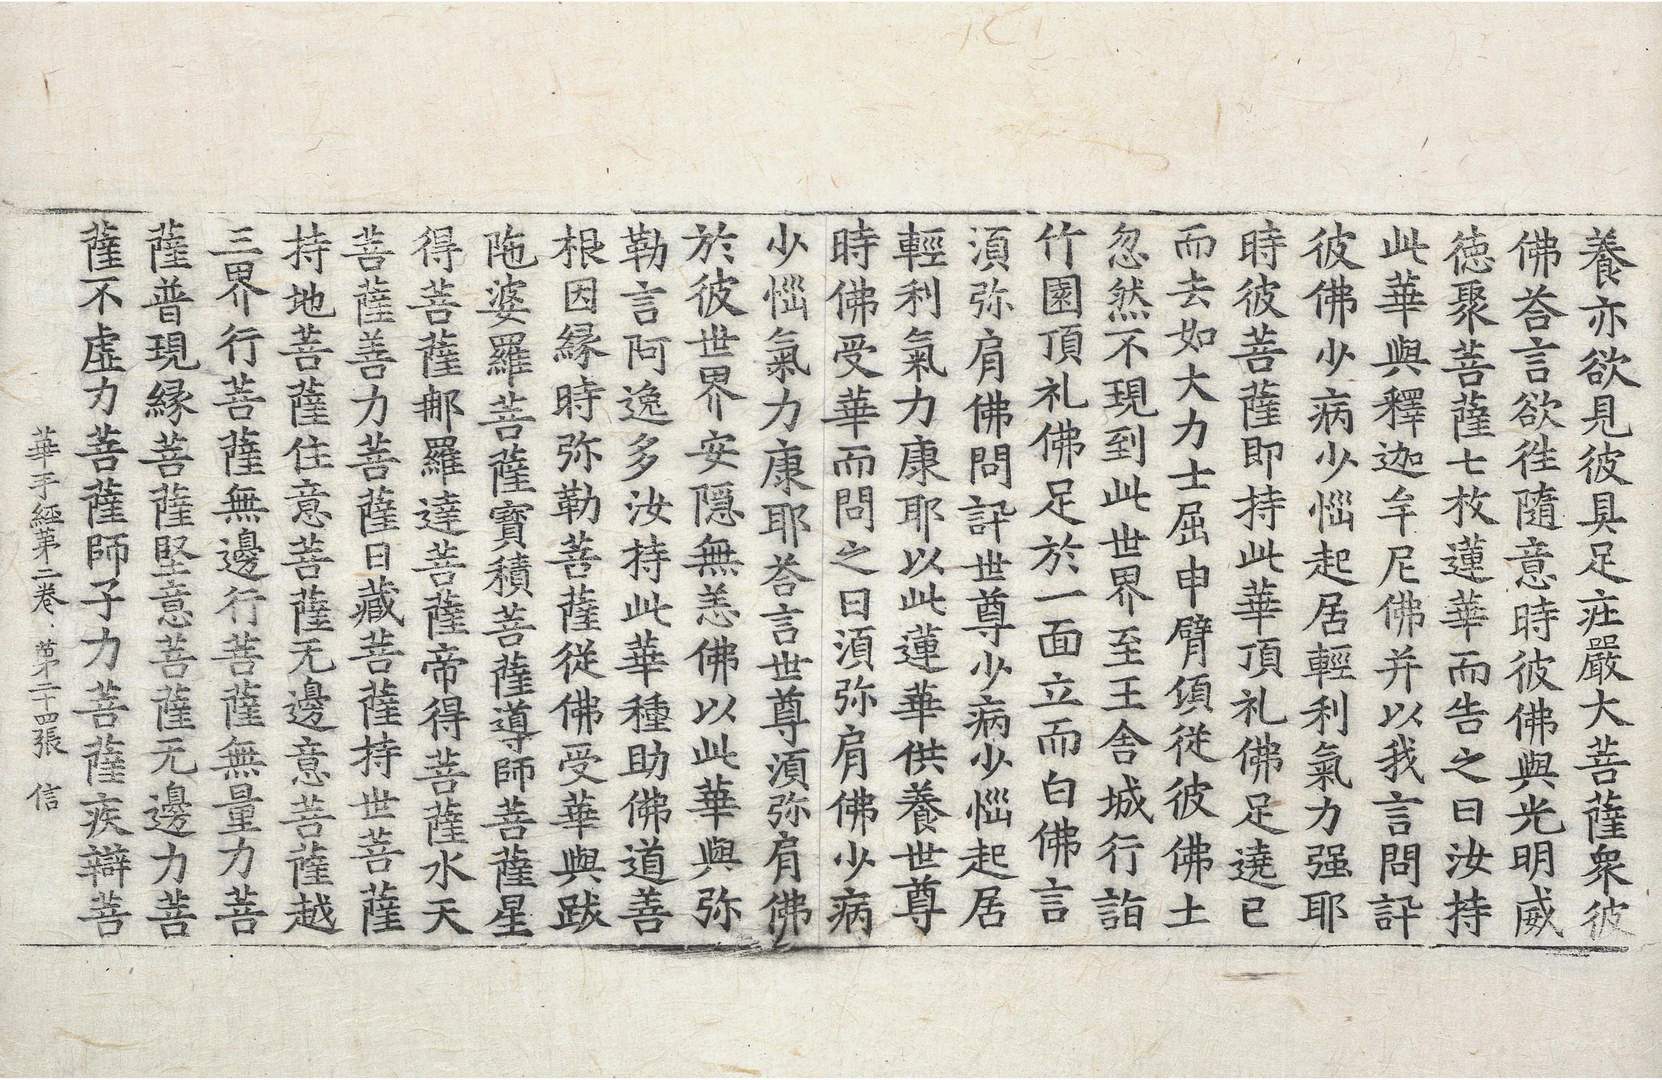 養亦欲見彼具足疘嚴大菩薩衆彼
佛荅言欲徃隨意時彼佛與光明威
徳聚菩薩七枚蓮華而告之曰汝持
此華與釋迦牟尼佛并以我言問訊
彼佛少病少惱起居輕利氣力强耶
時彼菩薩即持此華頂礼佛足遶已
而去如大力士屈申臂頃従彼佛土
忽然不現到此世界至王舍城行詣
竹園頂礼佛足於一面立而白佛言
湏弥肩佛問訊世尊少病少惱起居
輕利氣力康耶以此蓮華供養世尊
時佛受華而問之曰湏弥肩佛少病
少惱氣力康耶荅言世尊湏弥肩佛
於彼世界安隱無恙佛以此華與弥
勒言阿逸多汝持此華種助佛道善
根因縁時弥勒菩薩従佛受華與跋
陁婆羅菩薩寶積菩薩導師菩薩星
得菩薩𨚗羅達菩薩帝得菩薩水天
菩薩善力菩薩日藏菩薩持世菩薩
持地菩薩住意菩薩无邊意菩薩越
三界行菩薩無邊行菩薩無量力菩
薩普現縁菩薩堅意菩薩无邊力菩
薩不虛力菩薩師子力菩薩疾辯菩
華手經第二卷 第二十四張 信